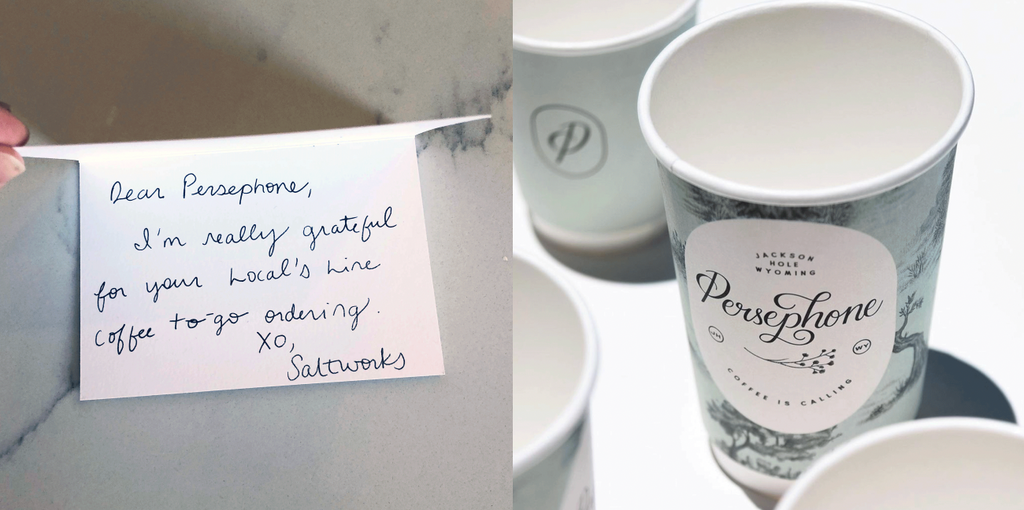 Dear Persephone,
I'm really grateful
for your Local's Line
coffee to-go ordering.
XO,
Saltworks
P
JACKSON
HOLE
WYOMING
Persephone
JH
WY
COFFEE IS CALLING